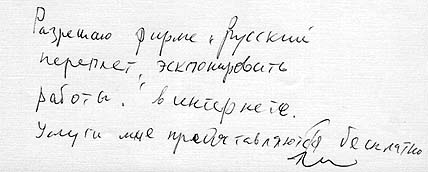 Разрешаю фирме "Русский
переплет" эскпонировать
работы в интернете.
Услуги мне предоставляются бесплатно